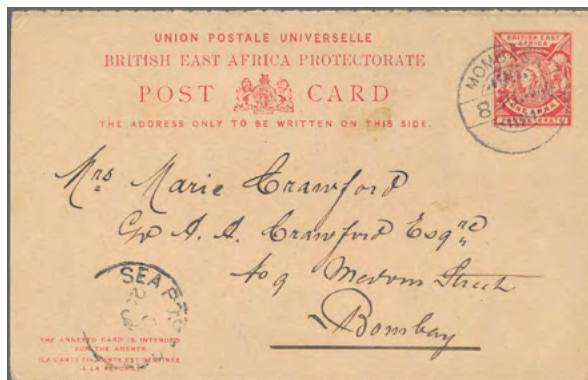 UNION POSTALE UNIVERSELLE
BRITISH EAST AFRICA PROTECTORATE
POST CARD
THE ADDRESS ONLY TO BE WRITTEN ON THIS SIDE.
BRITISH EAST
AFRICA
ONE ANNA
PROTECTORATE
MOMBASA
8
Mrs Marie Crawford
A. A. Crawford Esqre
Street
Bombay
SEA P
THE ANNEXED CARD IS INTENDED
FOR THE ANSWER.
(LA CARTE CI-JOINTE EST DESTINÉE
À LA RÉPONSE.)